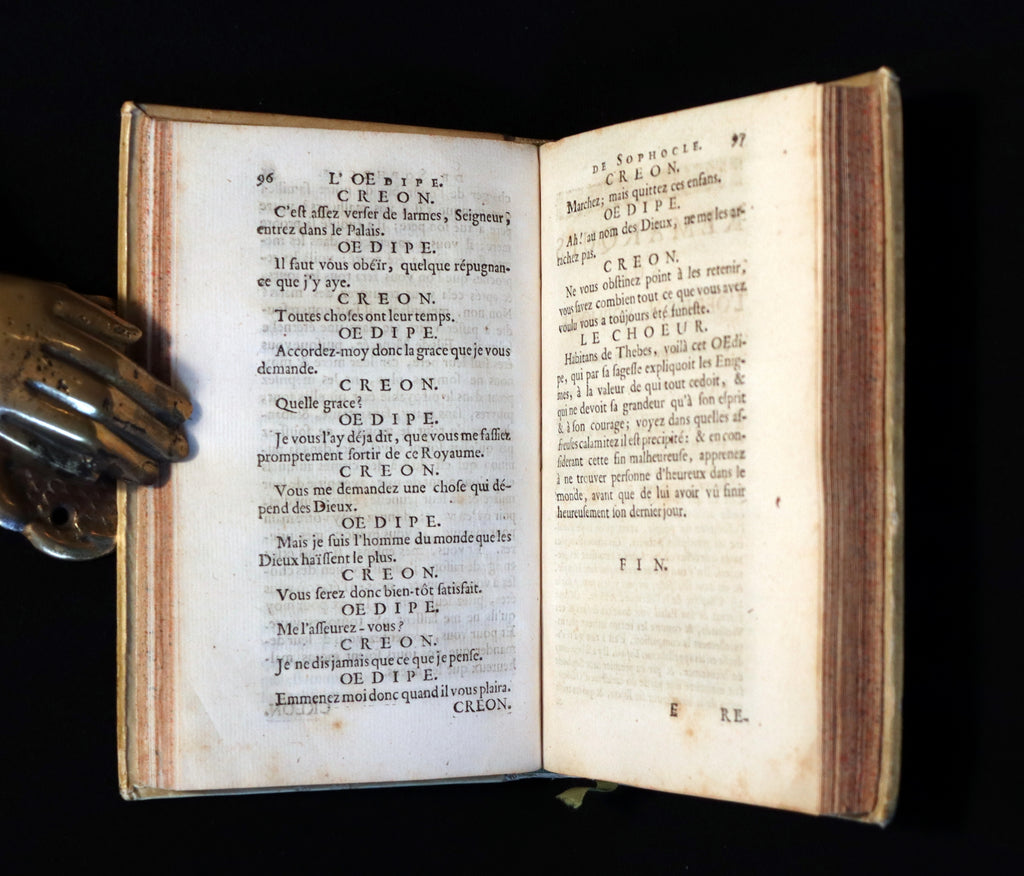 96 L' OEDIPE.
CREON.
C'eſt aſſez verſer de larmes, Seigneur;
entrez dans le Palais.
OEDIPE.
Il faut vous obéïr, quelque répugnan-
ce que j'y aye.
CREON.
Toutes choſes ont leur temps.
OEDIPE.
Accordez-moy donc la grace que je vous
demande.
CREON.
Quelle grace?
OEDIPE.
Je vous l'ay déja dit, que vous me faſſiez
promptement ſortir de ce Royaume.
CREON.
Vous me demandez une choſe qui dé-
pend des Dieux.
OEDIPE.
Mais je ſuis l'homme du monde que les
Dieux haïſſent le plus.
CREON.
Vous ſerez donc bien-tôt ſatisfait.
OEDIPE.
Me l'aſſeurez-vous?
CREON.
Je ne dis jamais que ce que je penſe.
OEDIPE.
Emmenez moi donc quand il vous plaira.
CREON.
DE SOPHOCLE. 97
CREON.
Marchez; mais quittez ces enfans.
OEDIPE.
Ah! au nom des Dieux, ne me les ar-
rachez pas.
CREON.
Ne vous obſtinez point à les retenir,
vous ſavez combien tout ce que vous avez
voulu vous a toûjours été funeſte.
LE CHOEUR.
Habitans de Thebes, voilà cet OEdi-
pe, qui par ſa ſageſſe expliquoit les Enig-
mes, à la valeur de qui tout cedoit, &
qui ne devoit ſa grandeur qu'à ſon eſprit
& à ſon courage; voyez dans quelles af-
freuſes calamitez il eſt precipité: & en con-
ſiderant cette fin malheureuſe, apprenez
à ne trouver perſonne d'heureux dans le
monde, avant que de lui avoir vû finir
heureuſement ſon dernier jour.
FIN.
E RE-